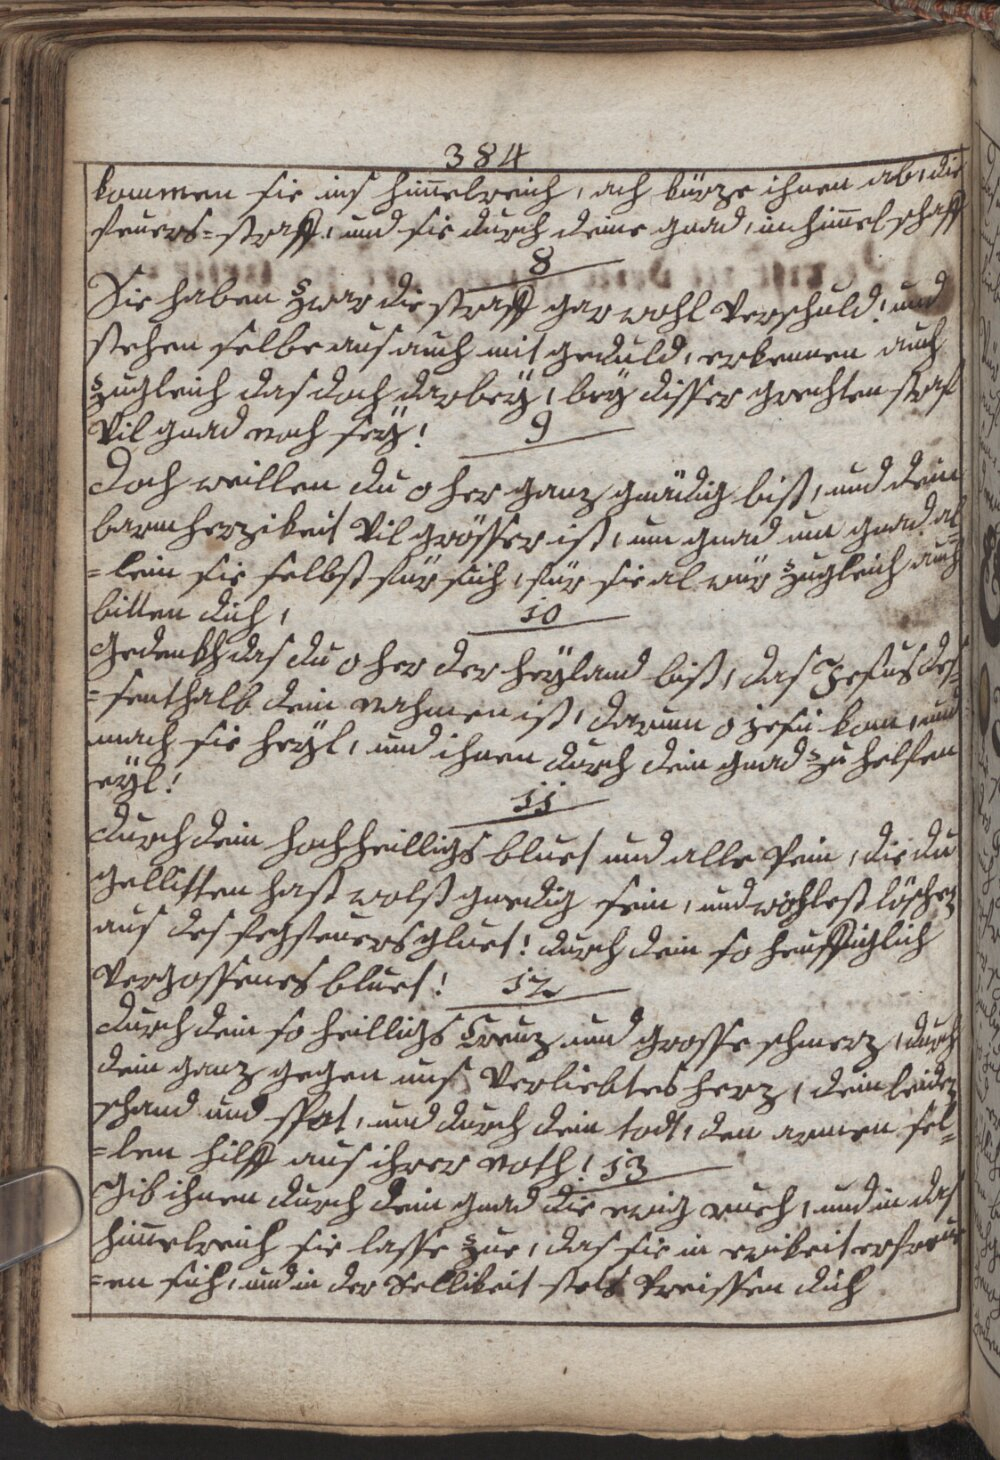 384
kommen sie ins himelreich, ach kürze ihnen ab, die
feuers=straff, und sie durch deine gnad, in himel schaff
8
Sie haben zwar die straff gar wohl verschuld, und
stehen selbe aus auch mit geduld, erkennen auch
zugleich das doch darbeÿ, beÿ disser grechten straf
Vil gnad noch seÿ!
9
Doch weillen du o her ganz gnädig bist, und dein
barmherzikeit Vil grösser ist, um gnad um gnad al
=lein sie selbst für sich, für sie al wür zugleich auch
bitten dich,
10
Gedenkh das du o her der heÿland bist, das Jesus des=
=senthalb dein nahmen ist, darum o jesu kom, und
mach sie heÿl, und ihnen durch dein gnad zu helfen
eÿl!
11
durch dein hochheilligs bluet und alle Pein, die du
gellitten hast wolst gnedig sein, und wohlest löschen
aus des fegfeuers gluet! durch dein so heuffiglich
Vergossenes bluet!
12
durch dein so heilligs Creuz und grosse schmerz, durch
dein ganz gegen uns Verliebtes herz, dein leiden
schand und spot, und durch dein todt, den armen sel=
=len hilff aus ihrer noth!
13
Gib ihnen durch dein gnad die ewig rueh, und in das
himelreich sie lasse zue, das sie in ewikeit erfreue
=en sich, und in der Sellikeit stets Preissen dich